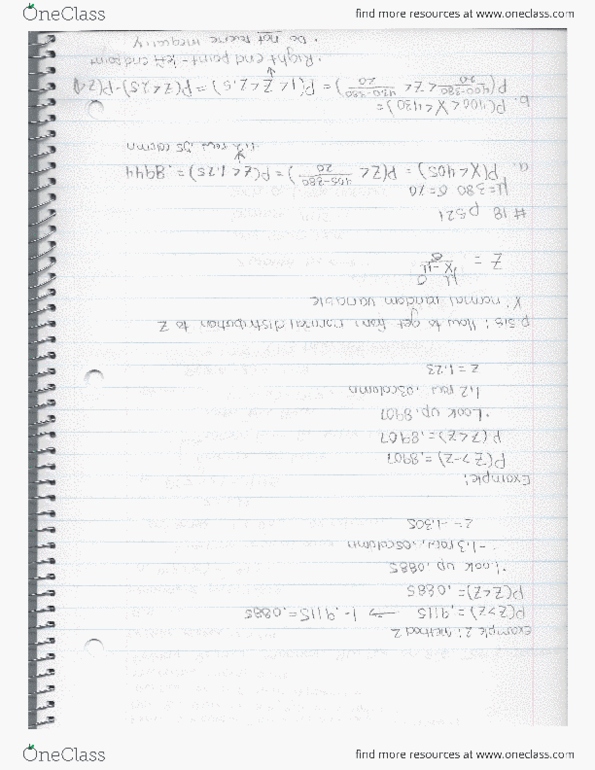 OneClass
find more resources at www.oneclass.com
Example 2: Method 2
P(Z>z)=.9115 → 1-.9115=.0885
P(Z<z)=.0885
· Look up .0885
-1.3 row, .05 column
z=-1.35
Example:
P(Z>-z)=.8907
P(Z<z)=.8907
· Look up .8907
1.2 row .03 column
z=1.23
p 515: How to get from normal distribution to Z
X: normal random variable
Z = X-μ/σ
#18 p521
μ=380 σ=20
a. P(X<405) = P(Z< 405-380/20) = P(Z<1.25) = .8944
1.2 row .05 column
b. P(400<X<430)=
P(400-380/20 <Z< 430-380/20) = P(1<Z<2.5) = P(Z<2.5)-P(Z<1)
· Right end point - left end point
· Do not reverse inequality
OneClass
find more resources at www.oneclass.com